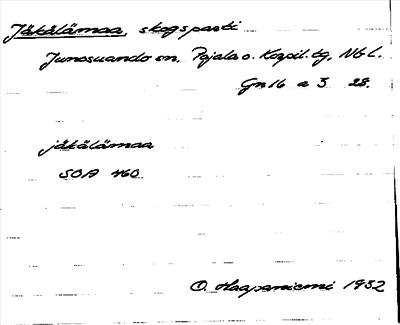 Jäkälämaa, skogsparti
Junosuando sn, Pajala o. Korpil. tg, Nb L.
Gn 16 a 3 28.
jäkälämaa
SOA 460
O. Haapaniemi 1932